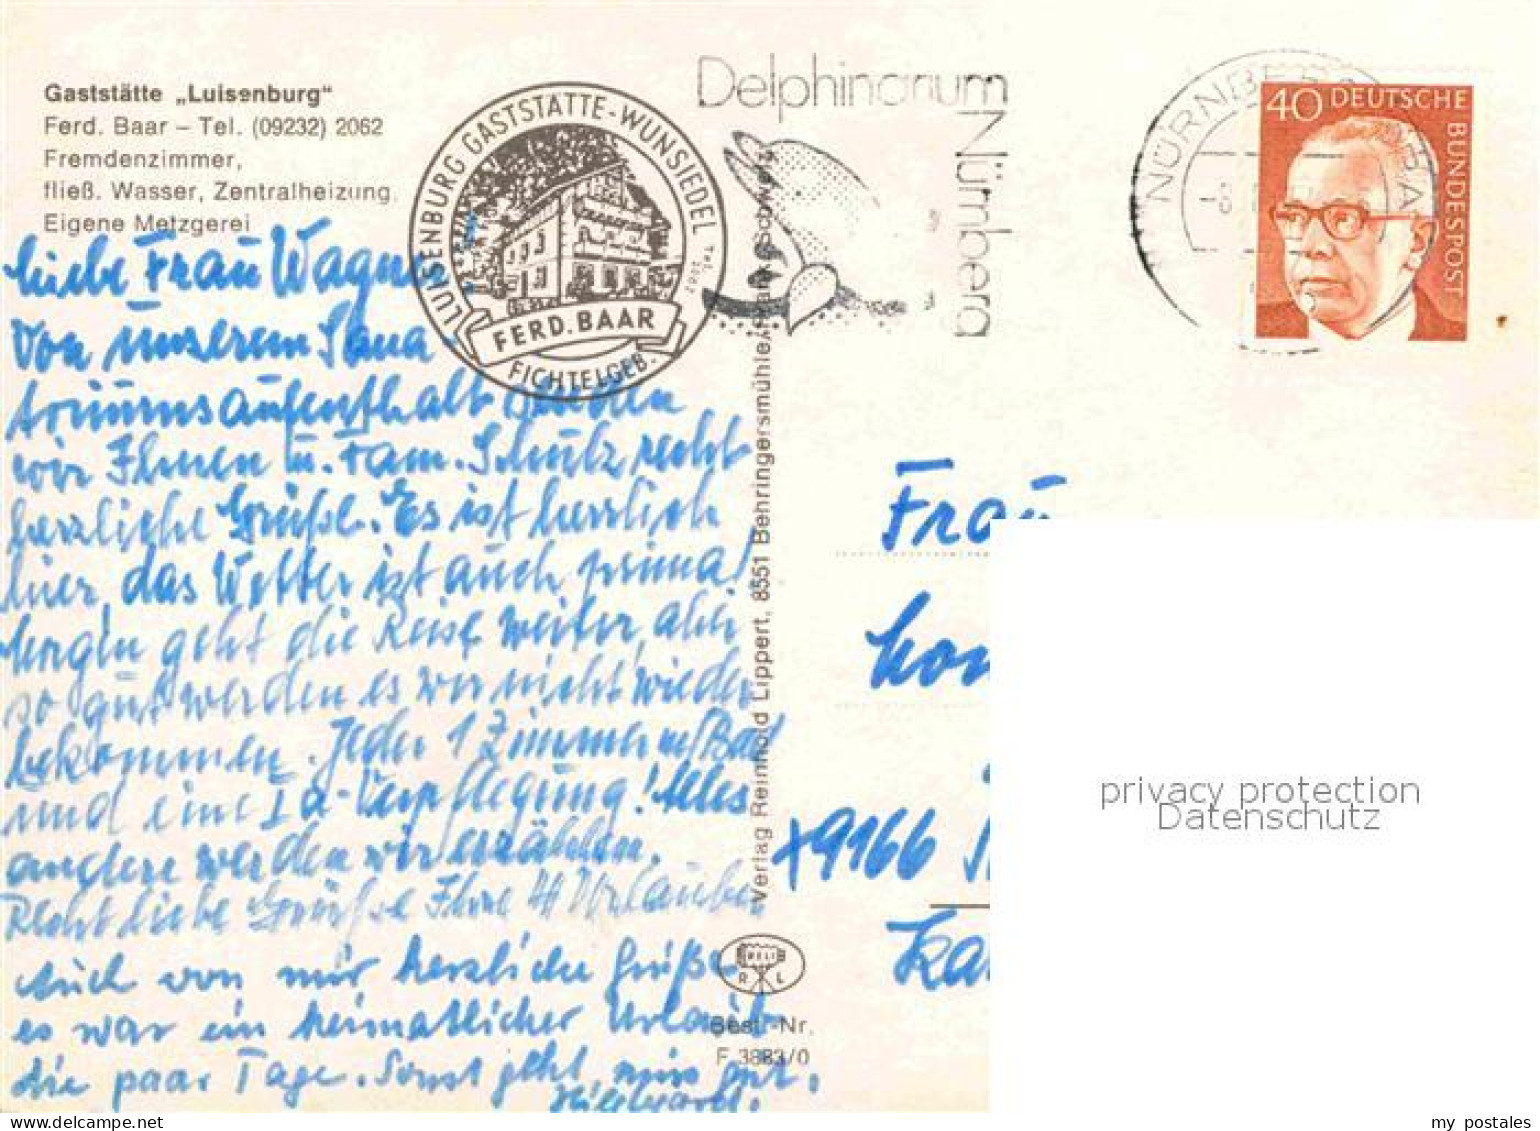 Gaststätte „Luisenburg"
Ferd. Baar – Tel. (09232) 2062
Fremdenzimmer,
fließ. Wasser, Zentralheizung
Eigene Metzgerei
LUISENBURG GASTSTÄTTE-WUNSIEDEL
FERD. BAAR
FICHTELGEB.
Delphinarium
Nürnberg
40 DEUTSCHE
BUNDESPOST
Liebe Frau Wagner
Von unserem Sana
toriumsaufenthalt senden
wir Ihnen u. Fam. Schulz recht
herzliche Grüße. Es ist herrlich
hier, das Wetter ist auch prima!
Morgen geht die Reise weiter, aber
so gut werden es wir nicht wieder
bekommen. Jeder 1 Zimmer m/Bad
und eine Ia-Verpflegung! Alles
andere werden wir erzählen.
Recht liebe Grüße Ihre 4 Urlauber
Auch von mir herzliche Grüße
es war ein heimatlicher Urlaub
die paar Tage. Sonst geht uns gut.
Hildegard.
Verlag Reinhold Lippert, 8551 Behringersmühle/
RELI
R L
Bestl-Nr.
F 3883/0
Frau
9166
privacy protection
Datenschutz
my postales